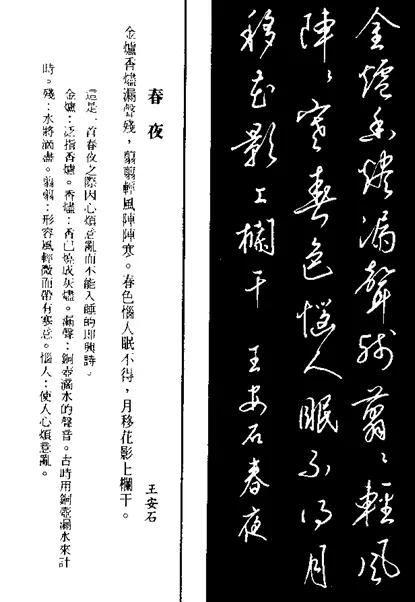 金爐香燼漏聲殘翦〻輕風
陣〻寒春色惱人眠不得月
移花影上欄干 王安石春夜
春夜 王安石
金爐香燼漏聲殘，翦翦輕風陣陣寒。春色惱人眠不得，月移花影上欄干。
這是一首春夜之際因心煩意亂而不能入睡的即興詩。
金爐：泛指香爐。香燼：香已燒成灰燼。漏聲：銅壺滴水的聲音。古時用銅壺漏水來計
時。殘：水將滴盡。翦翦：形容風輕微而帶有寒意。惱人：使人心煩意亂。